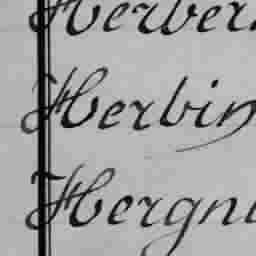 Herber
Herbin
Hergni